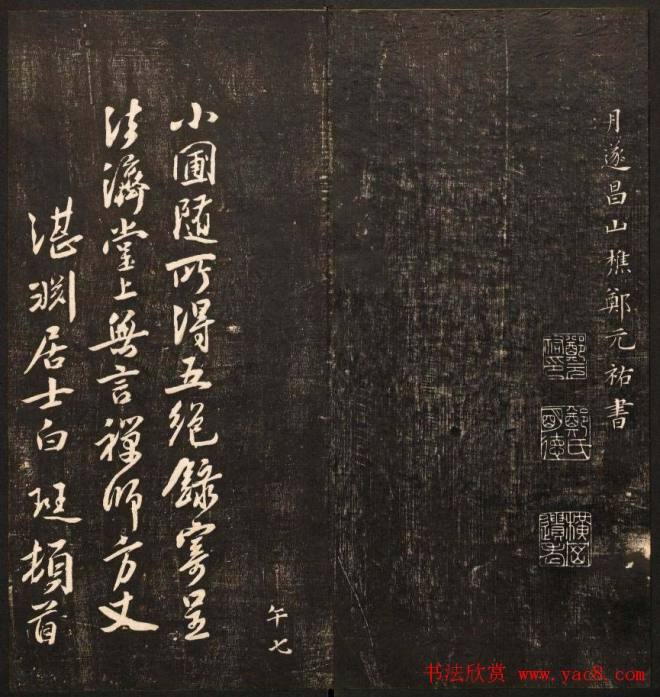 月遂昌山樵鄭元祐書
鄭元祐印
鄭氏明德
午七
小圃隨所得五絶錄寄呈
法濟堂上無言禪師方丈
湛淵居士白珽頓首
书法欣赏 www.yac8.com